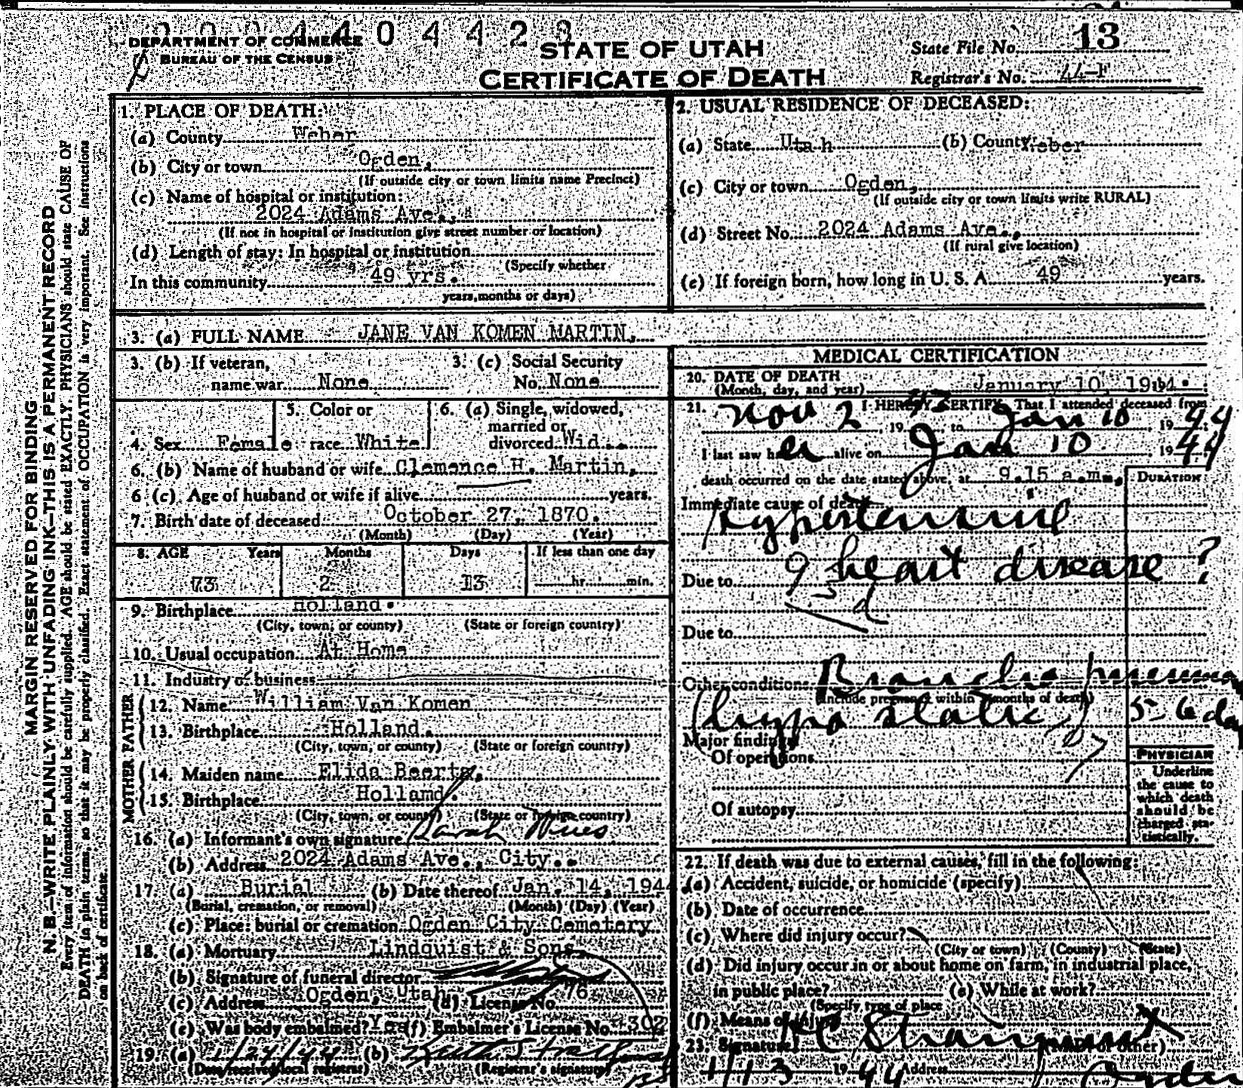 0 0 0 4 4 0 4 4 2 8
DEPARTMENT OF COMMERCE
BUREAU OF THE CENSUS
STATE OF UTAH
CERTIFICATE OF DEATH
State File No. 13
Registrar's No. 44-F
MARGIN RESERVED FOR BINDING
N. B.—WRITE PLAINLY WITH UNFADING INK—THIS IS A PERMANENT RECORD
Every item of information should be carefully supplied. AGE should be stated EXACTLY. PHYSICIANS should state CAUSE OF
DEATH in plain terms, so that it may be properly classified. Exact statement of OCCUPATION is very important. See instructions
on back of certificate.
1. PLACE OF DEATH:
(a) County Weber
(b) City or town Ogden,
(If outside city or town limits name Precinct)
(c) Name of hospital or institution:
2024 Adams Ave.,
(If not in hospital or institution give street number or location)
(d) Length of stay: In hospital or institution
(Specify whether
In this community 49 yrs.
years, months or days)
2. USUAL RESIDENCE OF DECEASED:
(a) State Utah (b) County Weber
(c) City or town Ogden,
(If outside city or town limits write RURAL)
(d) Street No. 2024 Adams Ave.,
(If rural give location)
(e) If foreign born, how long in U. S. A. 49 years.
3. (a) FULL NAME JANE VAN KOMEN MARTIN,
3. (b) If veteran, name war None
3. (c) Social Security No. None
4. Sex Female
5. Color or race White
6. (a) Single, widowed, married or divorced Wid.
6. (b) Name of husband or wife Clemence H. Martin,
6 (c). Age of husband or wife if alive years.
7. Birth date of deceased October 27, 1870.
(Month) (Day) (Year)
8. AGE Years Months Days If less than one day
73 2 13 hr. min.
9. Birthplace Holland.
(City, town, or county) (State or foreign country)
10. Usual occupation At Home
11. Industry or business
FATHER
12. Name William Van Komen
13. Birthplace Holland.
(City, town, or county) (State or foreign country)
MOTHER
14. Maiden name Elida Beerta,
15. Birthplace Hollamd.
(City, town, or county) (State or foreign country)
16. (a) Informant's own signature Sarah
(b) Address 2024 Adams Ave., City..
17. (a) Burial (b) Date thereof Jan. 14, 1944
(Burial, cremation, or removal) (Month) (Day) (Year)
(c) Place: burial or cremation Ogden City Cemetery
18. (a) Mortuary Lindquist & Sons
(b) Signature of funeral director
(c) Address Ogden, Utah (d) License No. 76
(e) Was body embalmed? Yes (f) Embalmer's License No. 302
19. (a) 1/24/44 (b)
(Date received local registrar) (Registrar's signature)
MEDICAL CERTIFICATION
20. DATE OF DEATH
(Month, day, and year) January 10, 1944.
21. I HEREBY CERTIFY, That I attended deceased from
Nov 2 1943 to Jan 10 1944
I last saw her alive on Jan 10 1944
death occurred on the date stated above, at 9.15 a.m.,
DURATION
Immediate cause of death
Hypertensive
Due to heart disease ?
Due to
Other conditions Broncho pneumo
(Include pregnancy within 3 months of death)
(hypostatic) 5-6 da
Major findings:
Of operations
Of autopsy
PHYSICIAN
Underline
the cause to
which death
should be
charged sta-
tistically.
22. If death was due to external causes, fill in the following:
(a) Accident, suicide, or homicide (specify)
(b) Date of occurrence
(c) Where did injury occur?
(City or town) (County) (State)
(d) Did injury occur in or about home on farm, in industrial place,
in public place? (e) While at work?
(Specify type of place
(f) Means of injury
23. Signature
1/13 1944 Address Ogden